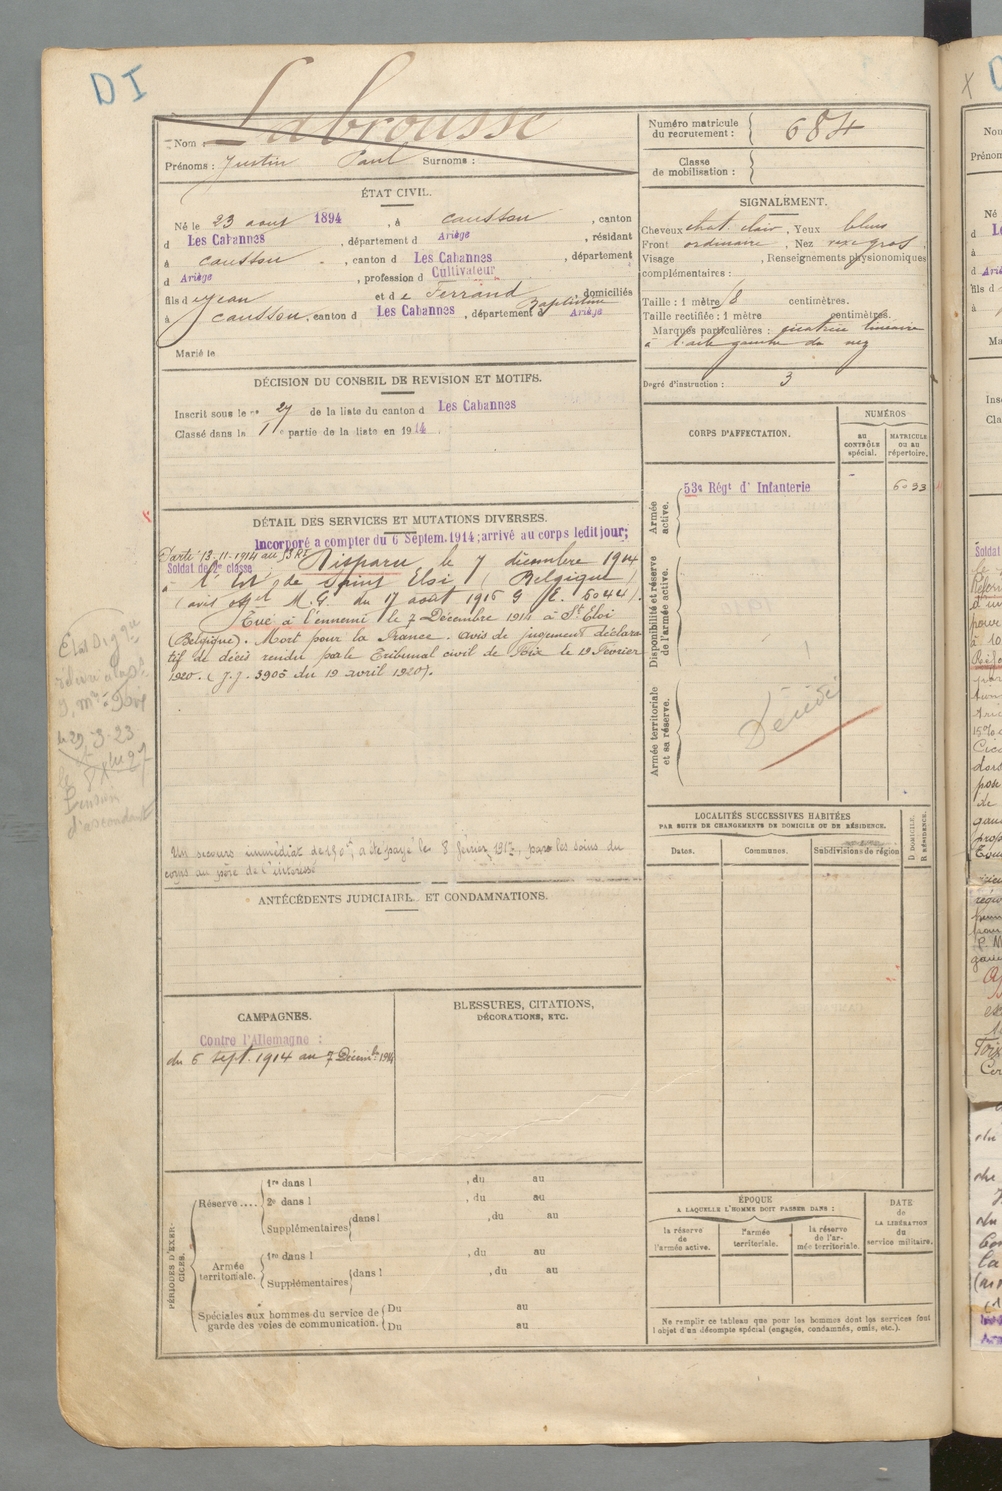 DI
Nom : Labrousse
Prénoms : Justin Paul Surnoms :
Numéro matricule
du recrutement : 684
Classe
de mobilisation :
ÉTAT CIVIL.
Né le 23 aout 1894, à Caussou, canton
d Les Cabannes, département d Ariège, résidant
à Caussou, canton d Les Cabannes, département
d Ariège, profession d Cultivateur
fils d Jean et de Ferrand Baptistine, domiciliés
à Caussou, canton d Les Cabannes, département d Ariège
Marié le
SIGNALEMENT.
Cheveux chat. clair, Yeux bleus
Front ordinaire, Nez vexe gros,
Visage , Renseignements physionomiques
complémentaires :
Taille : 1 mètre 8 centimètres.
Taille rectifiée : 1 mètre centimètres.
Marques particulières : cicatrice linéaire
à l'aile gauche du nez
Degré d'instruction : 3
DÉCISION DU CONSEIL DE REVISION ET MOTIFS.
Inscrit sous le n° 27 de la liste du canton d Les Cabannes
Classé dans la 1re partie de la liste en 1914
DÉTAIL DES SERVICES ET MUTATIONS DIVERSES.
Incorporé a compter du 6 Septem. 1914; arrivé au corps ledit jour;
Soldat de 2e classe
Parti 13-11-1914 au 53 RI Disparu, le 7 décembre 1914
à l'Est de Saint Eloi (Belgique)
(avis off.el M.G. du 17 août 1915 G E. 5044).
Tué à l'ennemi le 7 Décembre 1914 à St Eloi
(Belgique). Mort pour la France. Avis de jugement déclara
tif de décès rendu par le Tribunal civil de Foix le 19 Février
1920. (J.J. 3905 du 19 avril 1920).
Un secours immédiat de 150f, a été payé le 8 février 1917, par les soins du
corps au père de l'intéressé
Etat Sig
délivré à la
le 29-3-23
Pension
d'ascendant
CORPS D'AFFECTATION.
NUMÉROS
au
CONTRÔLE
spécial.
MATRICULE
ou au
répertoire.
Armée
active.
53e Régt d' Infanterie
6033
Disponibilité et réserve
de l'armée active.
Armée territoriale
et sa réserve.
Décédé
LOCALITÉS SUCCESSIVES HABITÉES
PAR SUITE DE CHANGEMENTS DE DOMICILE OU DE RÉSIDENCE.
Dates.
Communes.
Subdivisions de région
D DOMICILE.
R RÉSIDENCE.
ANTÉCÉDENTS JUDICIAIRES ET CONDAMNATIONS.
CAMPAGNES.
Contre l'Allemagne :
du 6 sept. 1914 au 7 Décembre 1914
BLESSURES, CITATIONS,
DÉCORATIONS, ETC.
PÉRIODES D'EXER-
CICES.
Réserve....
1re dans l , du au
2e dans l , du au
Supplémentaires dans l , du au
Armée
territoriale.
1re dans l , du au
Supplémentaires dans l , du au
Spéciales aux hommes du service de
garde des voies de communication.
Du au
Du au
ÉPOQUE
A LAQUELLE L'HOMME DOIT PASSER DANS :
la réserve
de
l'armée active.
l'armée
territoriale.
la réserve
de l'ar-
mée territoriale.
DATE
de
LA LIBÉRATION
du
service militaire.
Ne remplir ce tableau que pour les hommes dont les services font
l'objet d'un décompte spécial (engagés, condamnés, omis, etc.).